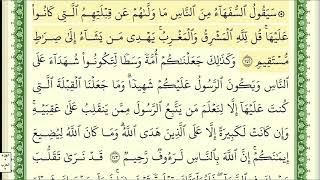 ۞ سَيَقُولُ ٱلسُّفَهَآءُ مِنَ ٱلنَّاسِ مَا وَلَّىٰهُمْ عَن قِبْلَتِهِمُ ٱلَّتِى كَانُوا۟
عَلَيْهَا ۚ قُل لِّلَّهِ ٱلْمَشْرِقُ وَٱلْمَغْرِبُ ۚ يَهْدِى مَن يَشَآءُ إِلَىٰ صِرَٰطٍ
مُّسْتَقِيمٍ ١٤٢ وَكَذَٰلِكَ جَعَلْنَٰكُمْ أُمَّةً وَسَطًا لِّتَكُونُوا۟ شُهَدَآءَ عَلَى
ٱلنَّاسِ وَيَكُونَ ٱلرَّسُولُ عَلَيْكُمْ شَهِيدًا ۗ وَمَا جَعَلْنَا ٱلْقِبْلَةَ ٱلَّتِى
كُنتَ عَلَيْهَآ إِلَّا لِنَعْلَمَ مَن يَتَّبِعُ ٱلرَّسُولَ مِمَّن يَنقَلِبُ عَلَىٰ عَقِبَيْهِ ۚ
وَإِن كَانَتْ لَكَبِيرَةً إِلَّا عَلَى ٱلَّذِينَ هَدَى ٱللَّهُ ۗ وَمَا كَانَ ٱللَّهُ لِيُضِيعَ
إِيمَٰنَكُمْ ۚ إِنَّ ٱللَّهَ بِٱلنَّاسِ لَرَءُوفٌ رَّحِيمٌ ١٤٣ قَدْ نَرَىٰ تَقَلُّبَ